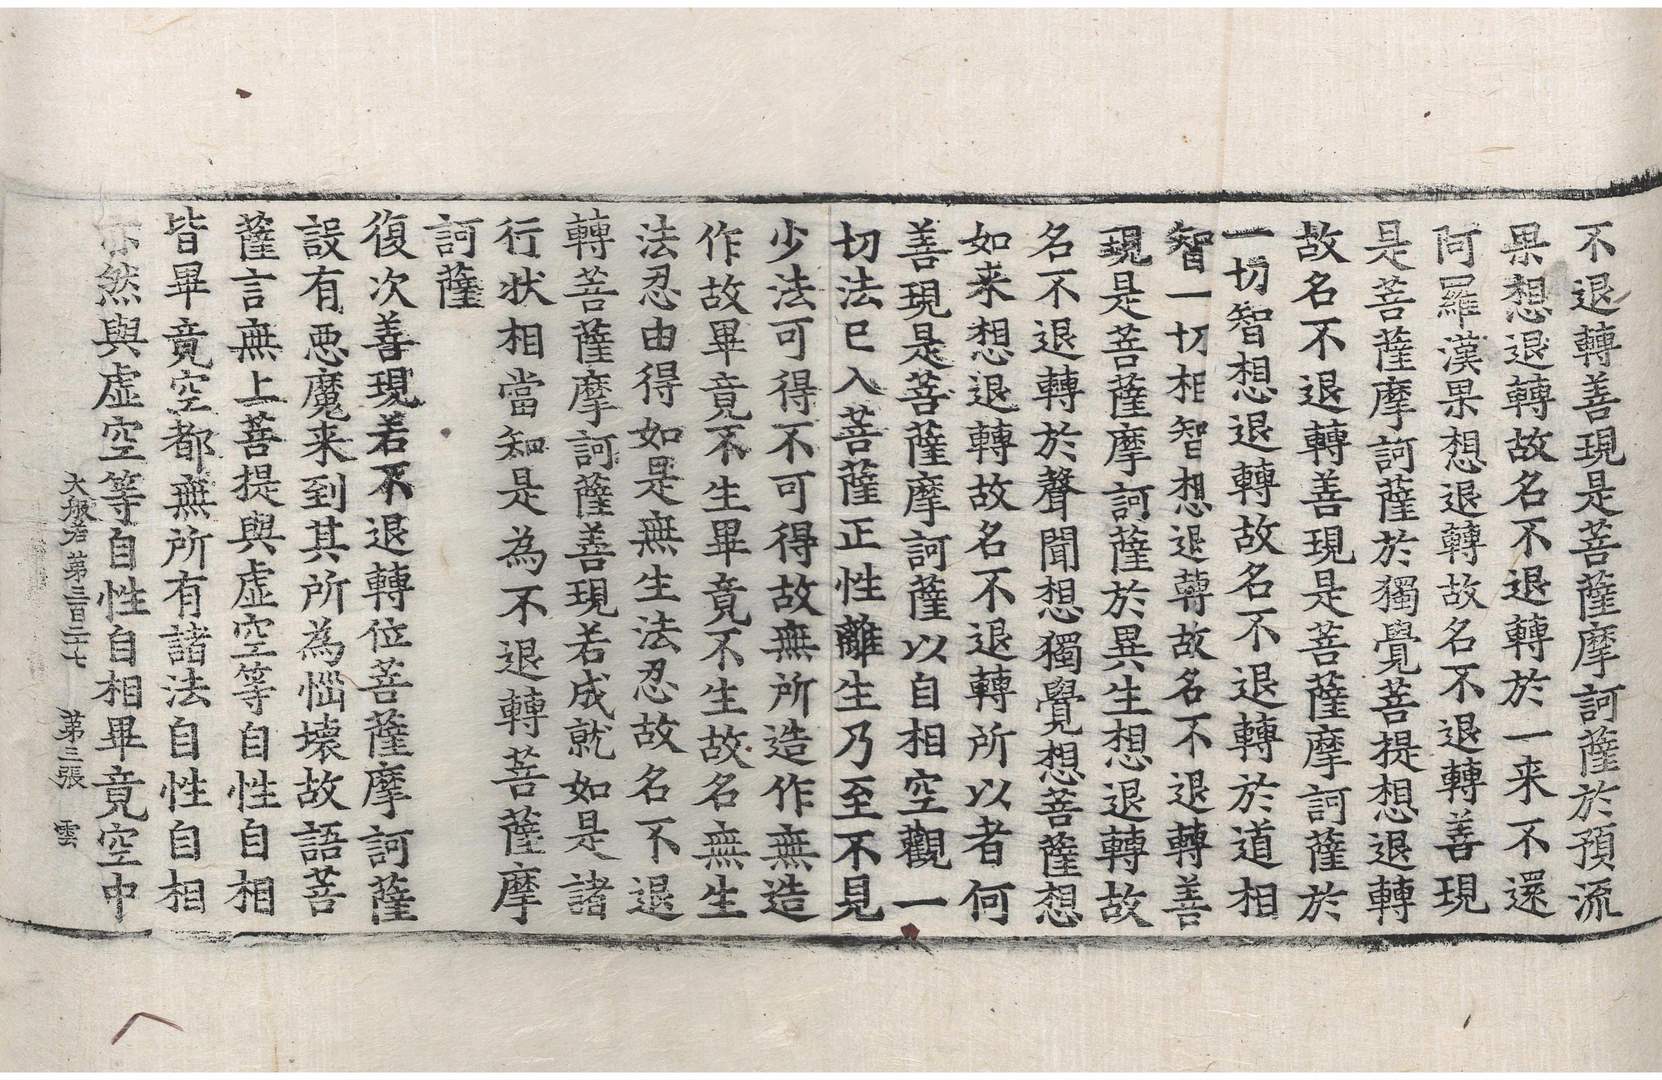 不退轉善現是菩薩摩訶薩於預流
果想退轉故名不退轉於一来不還
阿羅漢果想退轉故名不退轉善現
是菩薩摩訶薩於獨覺菩提想退轉
故名不退轉善現是菩薩摩訶薩於
一切智想退轉故名不退轉於道相
智一切相智想退轉故名不退轉善
現是菩薩摩訶薩於異生想退轉故
名不退轉於聲聞想獨覺想菩薩想
如来想退轉故名不退轉所以者何
善現是菩薩摩訶薩以自相空觀一
切法已入菩薩正性離生乃至不見
少法可得不可得故無所造作無造
作故畢竟不生畢竟不生故名無生
法忍由得如是無生法忍故名不退
轉菩薩摩訶薩善現若成就如是諸
行状相當知是為不退轉菩薩摩
訶薩
復次善現若不退轉位菩薩摩訶薩
設有悪魔来到其所為惱壞故語菩
薩言無上菩提與虚空等自性自相
皆畢竟空都無所有諸法自性自相
亦然與虚空等自性自相畢竟空中
大般若第三百二十七 第三張 雲